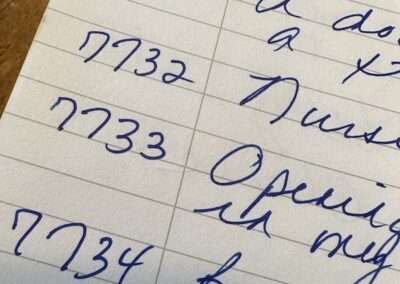 a do
a
7732 Nurs
7733 Opening
in my
7734